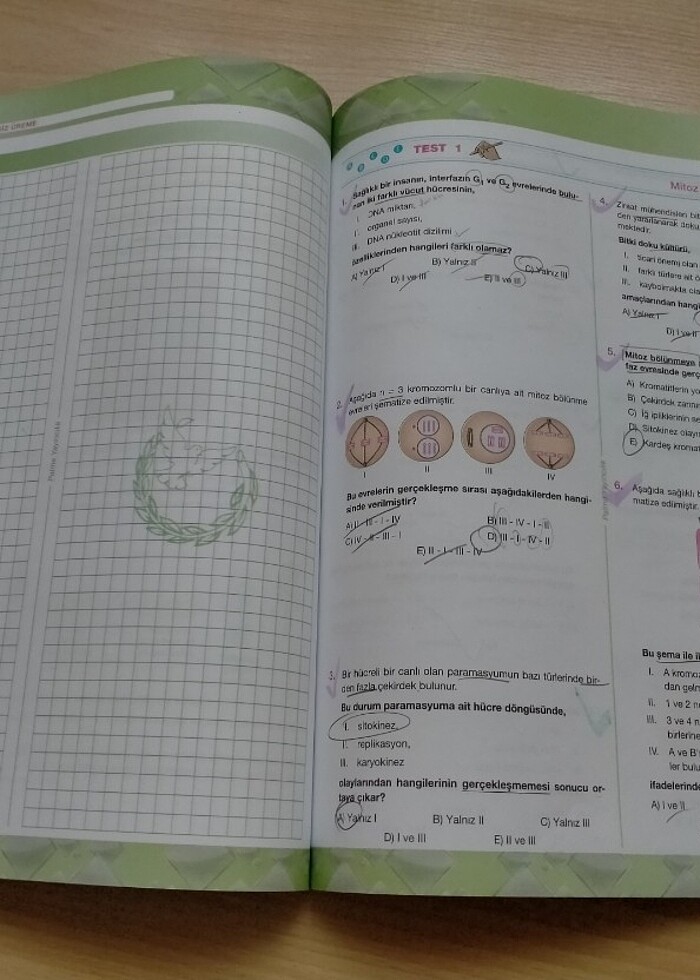 SİZ ÜREME
Palme Yayınevi
TEST 1
1. Sağlıklı bir insanın, interfazın G1 ve G2 evrelerinde bulu-
nan iki farklı vücut hücresinin,
I. DNA miktarı,
II. organel sayısı,
III. DNA nükleotit dizilimi
özelliklerinden hangileri farklı olamaz?
A) Yalnız I
B) Yalnız II
C) Yalnız III
D) I ve III
E) II ve III
2. Aşağıda n = 3 kromozomlu bir canlıya ait mitoz bölünme
evreleri şematize edilmiştir.
I
II
III
IV
Bu evrelerin gerçekleşme sırası aşağıdakilerden hangi-
sinde verilmiştir?
A) II - III - I - IV
B) III - IV - I - II
C) IV - II - III - I
D) III - I - IV - II
E) II - I - III - IV
3. Bir hücreli bir canlı olan paramasyumun bazı türlerinde bir-
den fazla çekirdek bulunur.
Bu durum paramasyuma ait hücre döngüsünde,
I. sitokinez,
II. replikasyon,
III. karyokinez
olaylarından hangilerinin gerçekleşmemesi sonucu or-
taya çıkar?
A) Yalnız I
B) Yalnız II
C) Yalnız III
D) I ve III
E) II ve III
Mitoz
4. Ziraat mühendisleri bit
den yararlanarak doku
mektedir.
Bitki doku kültürü,
I. ticari önemi olan
II. farklı türlere ait ö
III. kaybolmakta ola
amaçlarından hangi
A) Yalnız I
D) I ve II
5. Mitoz bölünmeye
faz evresinde gerç
A) Kromatitlerin yo
B) Çekirdek zarının
C) İğ ipliklerinin se
D) Sitokinez olayı
E) Kardeş kromat
6. Aşağıda sağlıklı b
matize edilmiştir.
Bu şema ile il
I. A kromoz
dan gelm
II. 1 ve 2 n
III. 3 ve 4 n
birlerine
IV. A ve B'
ler bulu
ifadelerinde
A) I ve II